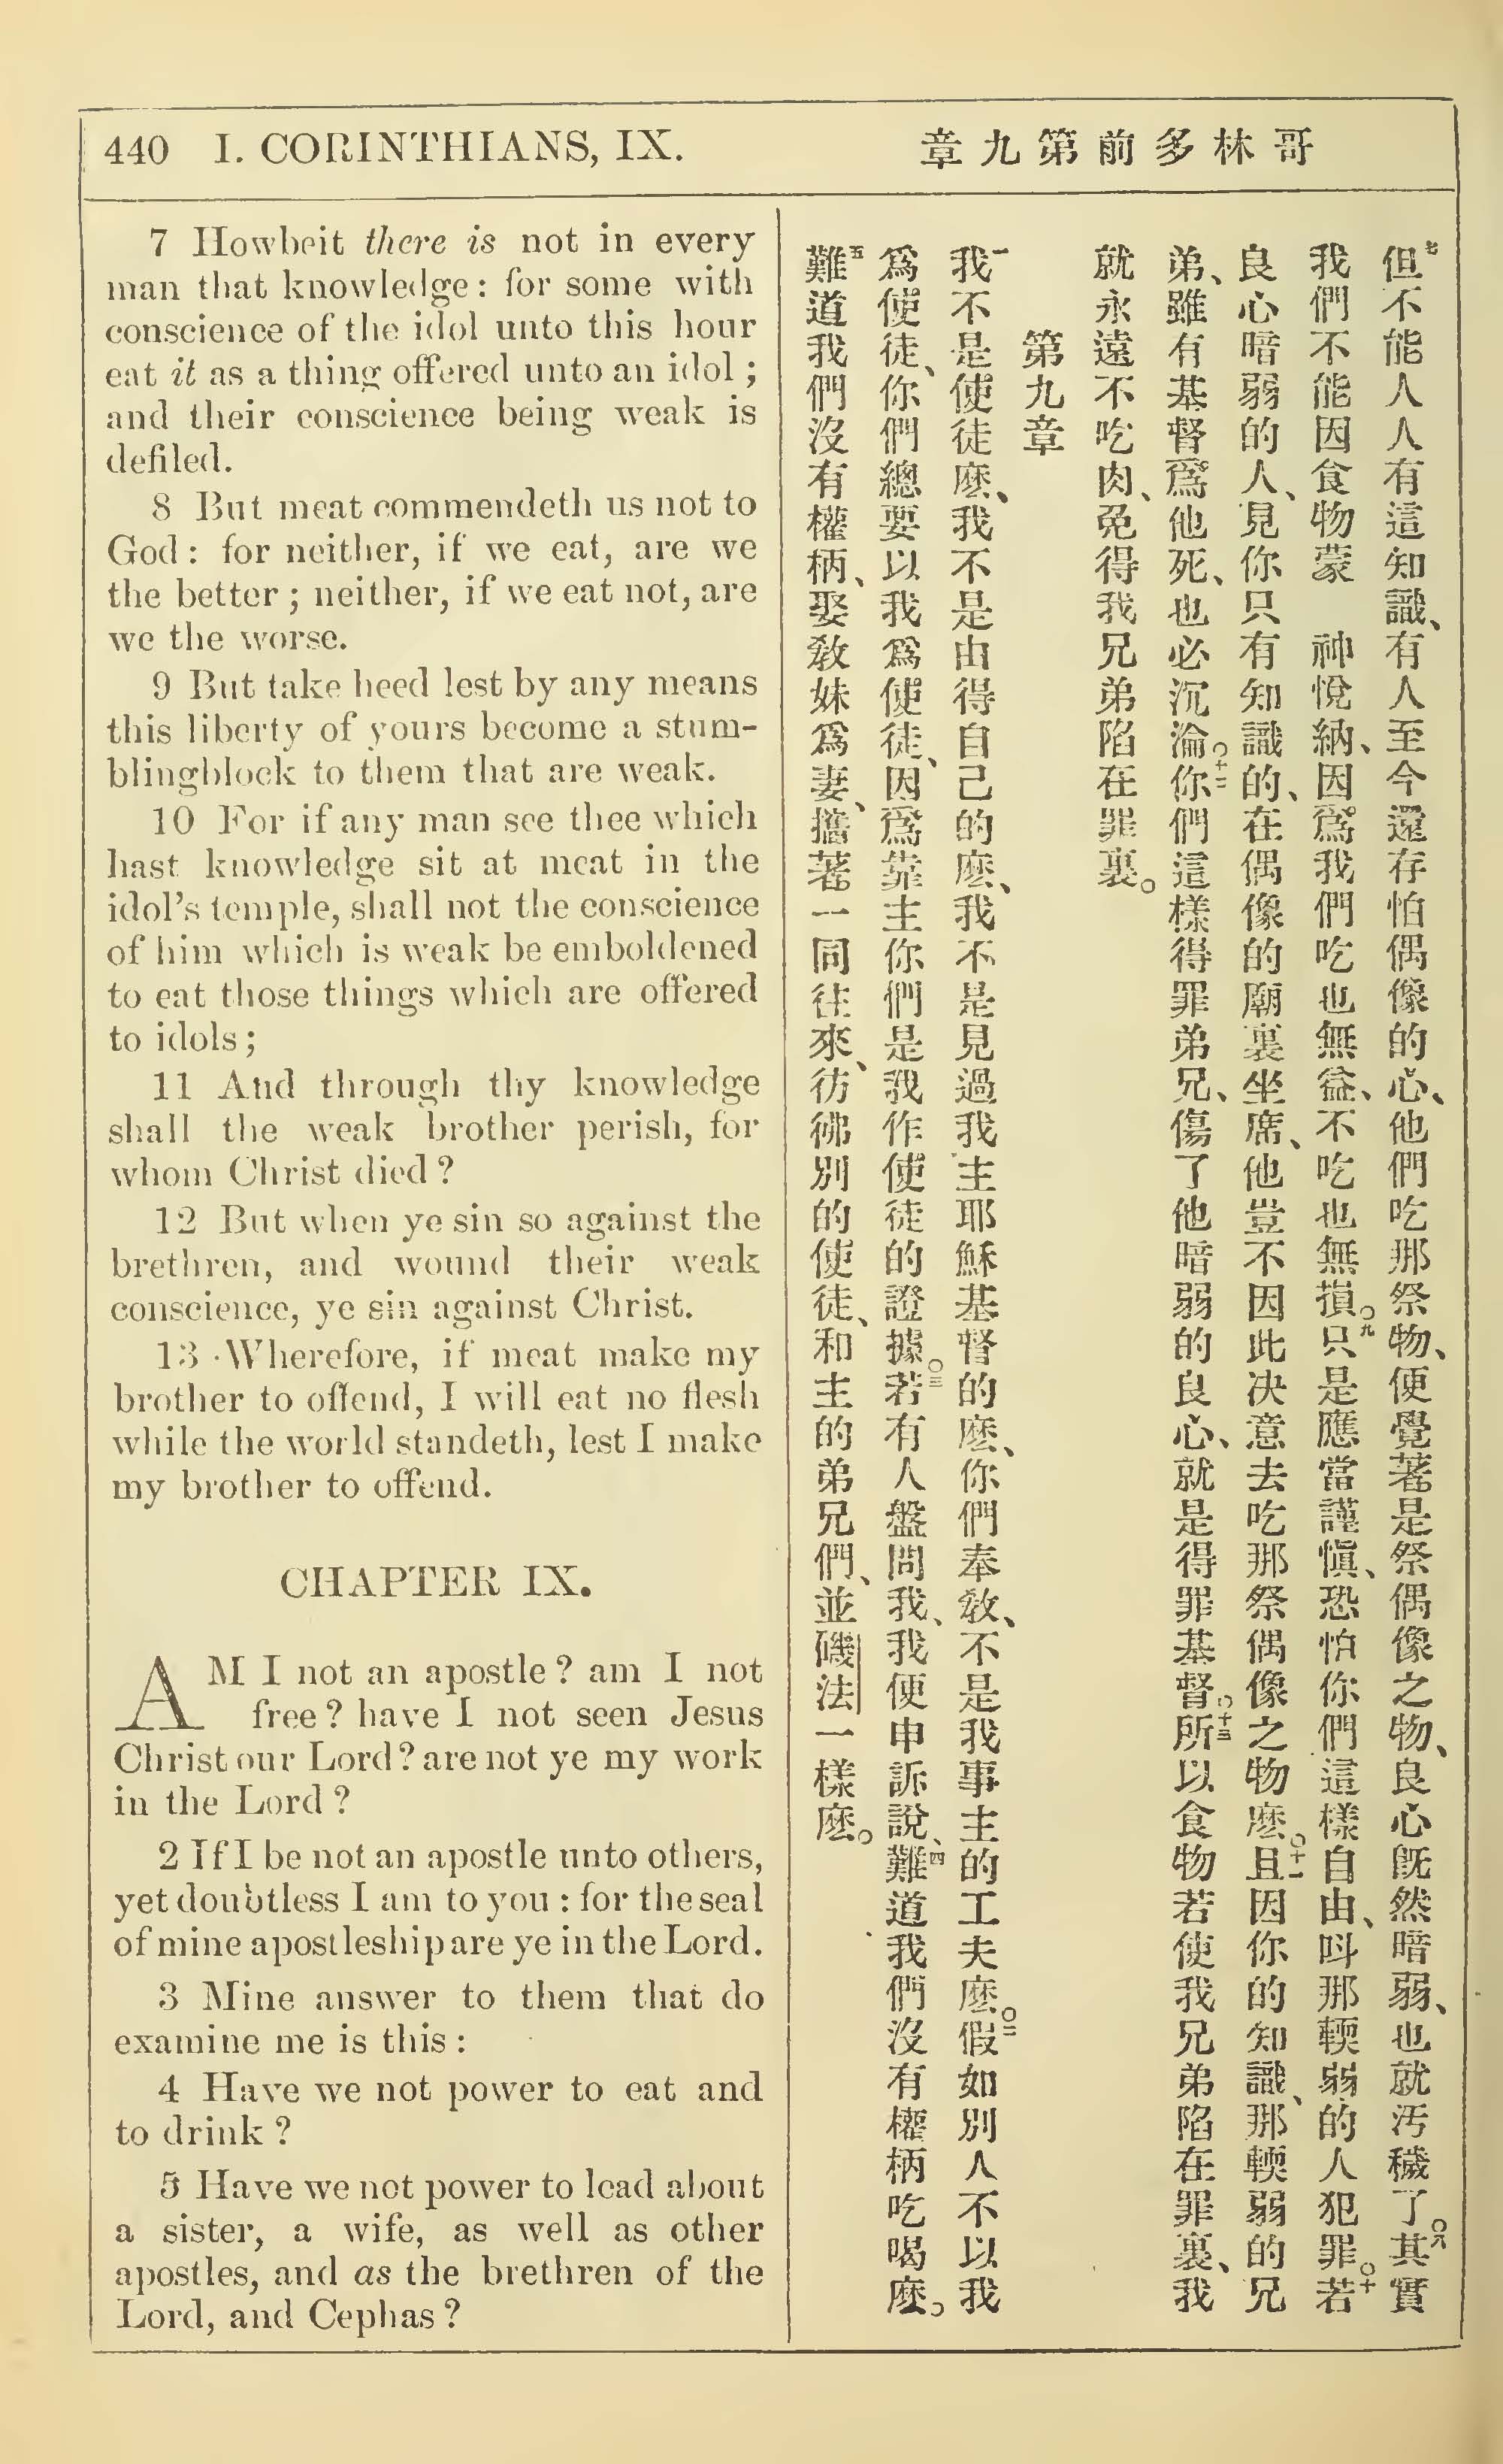 440 I. CORINTHIANS, IX.
哥林多前第九章
7 Howbeit there is not in every
man that knowledge: for some with
conscience of the idol unto this hour
eat it as a thing offered unto an idol;
and their conscience being weak is
defiled.
8 But meat commendeth us not to
God: for neither, if we eat, are we
the better; neither, if we eat not, are
we the worse.
9 But take heed lest by any means
this liberty of yours become a stum-
blingblock to them that are weak.
10 For if any man see thee which
hast knowledge sit at meat in the
idol's temple, shall not the conscience
of him which is weak be emboldened
to eat those things which are offered
to idols;
11 And through thy knowledge
shall the weak brother perish, for
whom Christ died?
12 But when ye sin so against the
brethren, and wound their weak
conscience, ye sin against Christ.
13 Wherefore, if meat make my
brother to offend, I will eat no flesh
while the world standeth, lest I make
my brother to offend.
CHAPTER IX.
AM I not an apostle? am I not
free? have I not seen Jesus
Christ our Lord? are not ye my work
in the Lord?
2 If I be not an apostle unto others,
yet doubtless I am to you: for the seal
of mine apostleship are ye in the Lord.
3 Mine answer to them that do
examine me is this:
4 Have we not power to eat and
to drink?
5 Have we not power to lead about
a sister, a wife, as well as other
apostles, and as the brethren of the
Lord, and Cephas?
七但不能人人有這知識、有人至今還存怕偶像的心、他們吃那祭物、便覺著是祭偶像之物、良心旣然暗弱、也就汚穢了。八其實
我們不能因食物蒙 神悅納、因爲我們吃也無益、不吃也無損。九只是應當謹愼、恐怕你們這樣自由、呌那輭弱的人犯罪。十若
良心暗弱的人、見你只有知識的、在偶像的廟裏坐席、他豈不因此决意去吃那祭偶像之物麽。十一且因你的知識、那輭弱的兄
弟、雖有基督爲他死、也必沉淪。十二你們這樣得罪弟兄、傷了他暗弱的良心、就是得罪基督。十三所以食物若使我兄弟陷在罪裏、我
就永遠不吃肉、免得我兄弟陷在罪裏。
第九章
一我不是使徒麽、我不是由得自己的麽、我不是見過我主耶穌基督的麽、你們奉敎、不是我事主的工夫麽。二假如別人不以我
爲使徒、你們總要以我爲使徒、因爲靠主你們是我作使徒的證據。三若有人盤問我、我便申訴說、四難道我們沒有權柄吃喝麽。
五難道我們沒有權柄、娶敎妹爲妻、攜著一同往來、彷彿別的使徒、和主的弟兄們、並磯法一樣麽。